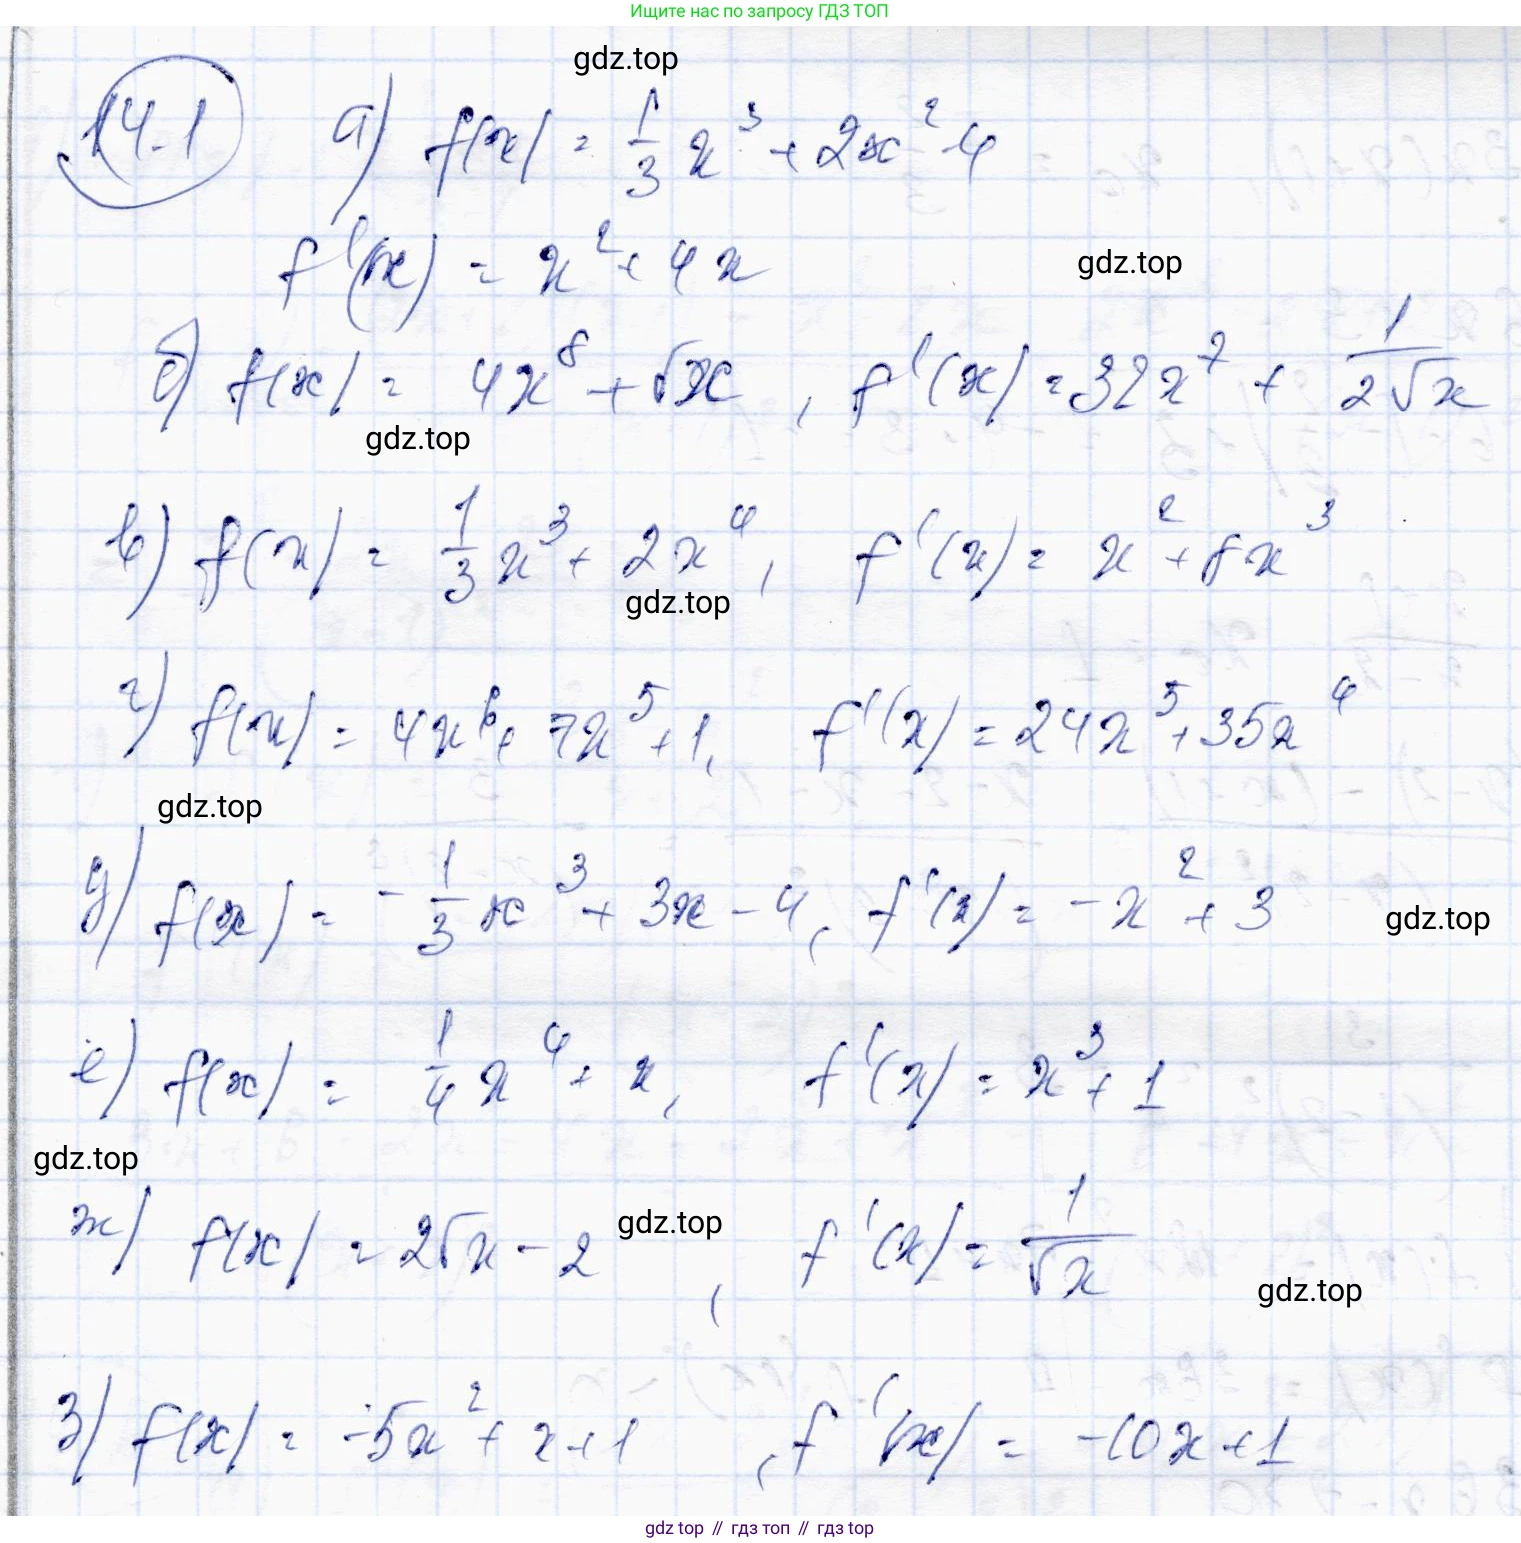 Ищите нас по запросу ГДЗ ТОП
gdz.top
14.1 а) f(x) = 1/3 x³ + 2x² - 4
f'(x) = x² + 4x
gdz.top
б) f(x) = 4x⁸ + √x, f'(x) = 32x⁷ + 1/(2√x)
gdz.top
в) f(x) = 1/3 x³ + 2x⁴, f'(x) = x² + 8x³
gdz.top
г) f(x) = 4x⁶ + 7x⁵ + 1, f'(x) = 24x⁵ + 35x⁴
gdz.top
д) f(x) = - 1/3 x³ + 3x - 4, f'(x) = - x² + 3
gdz.top
е) f(x) = 1/4 x⁴ + x, f'(x) = x³ + 1
gdz.top
ж) f(x) = 2√x - 2, f'(x) = 1/√x
gdz.top
gdz.top
з) f(x) = -5x² + x + 1, f'(x) = -10x + 1
gdz top // гдз топ // гдз top